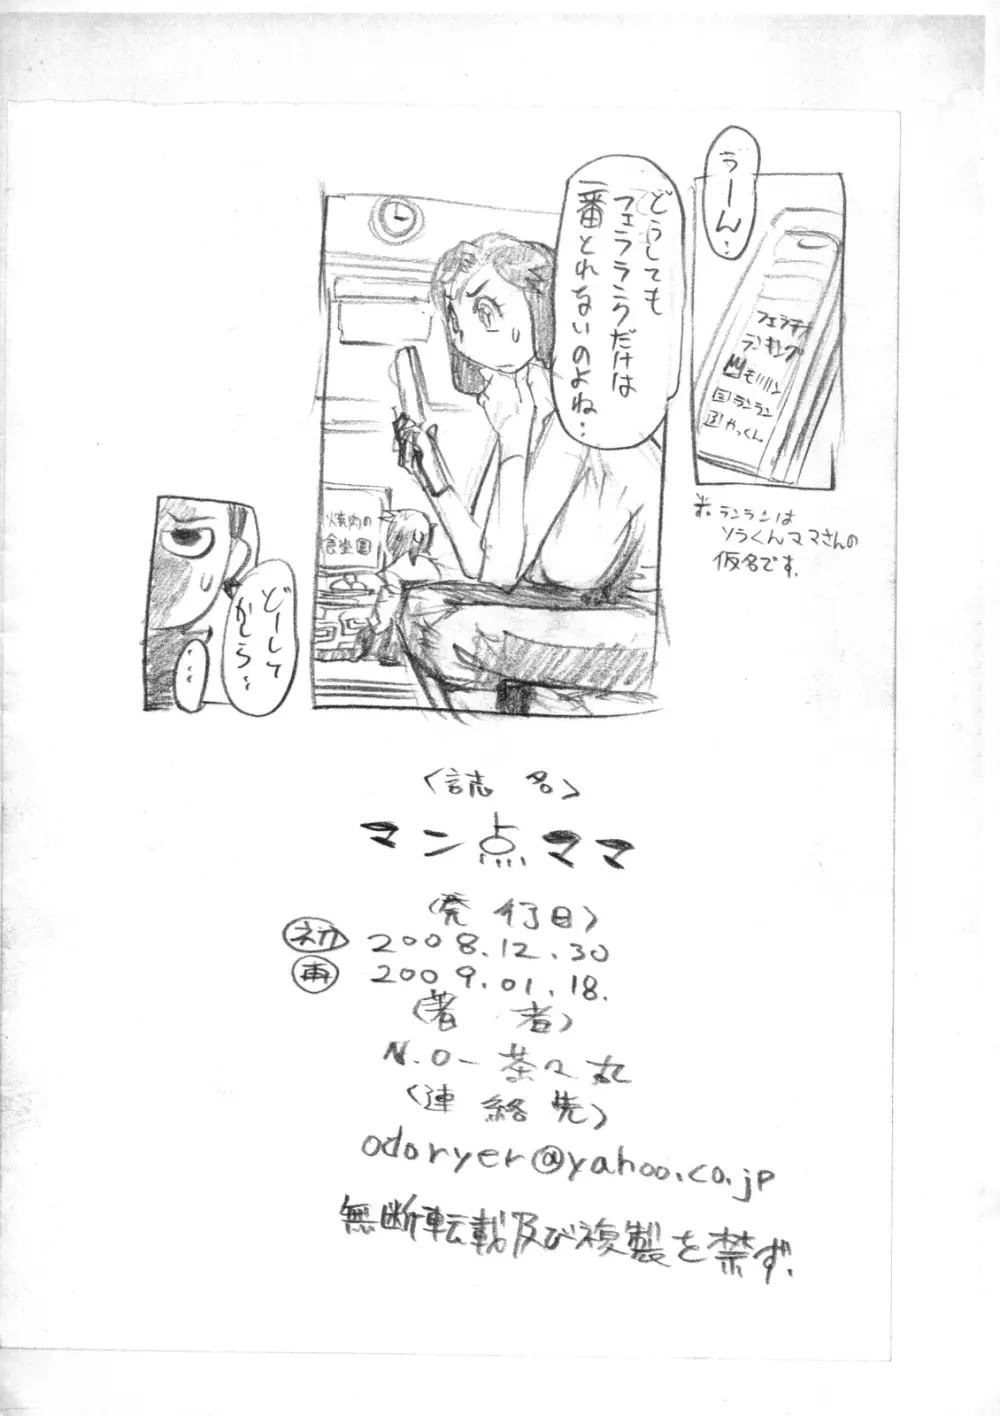 うーん…
フェラチオ
ランキング
1 モリリン
2 ランラン
3 やっくん
※ランランは
ソラくんママさんの
仮名です.
どうしても
フェラランクだけは
一番とれないのよね…
焼肉の
食尘園
どーして
かしら…
…
〈誌名〉
マン点ママ
〈発行日〉
初 2008.12.30
再 2009.01.18.
〈著者〉
N.O-茶々丸
〈連絡先〉
odoryer@yahoo.co.jp
無断転載及び複製を禁ず.